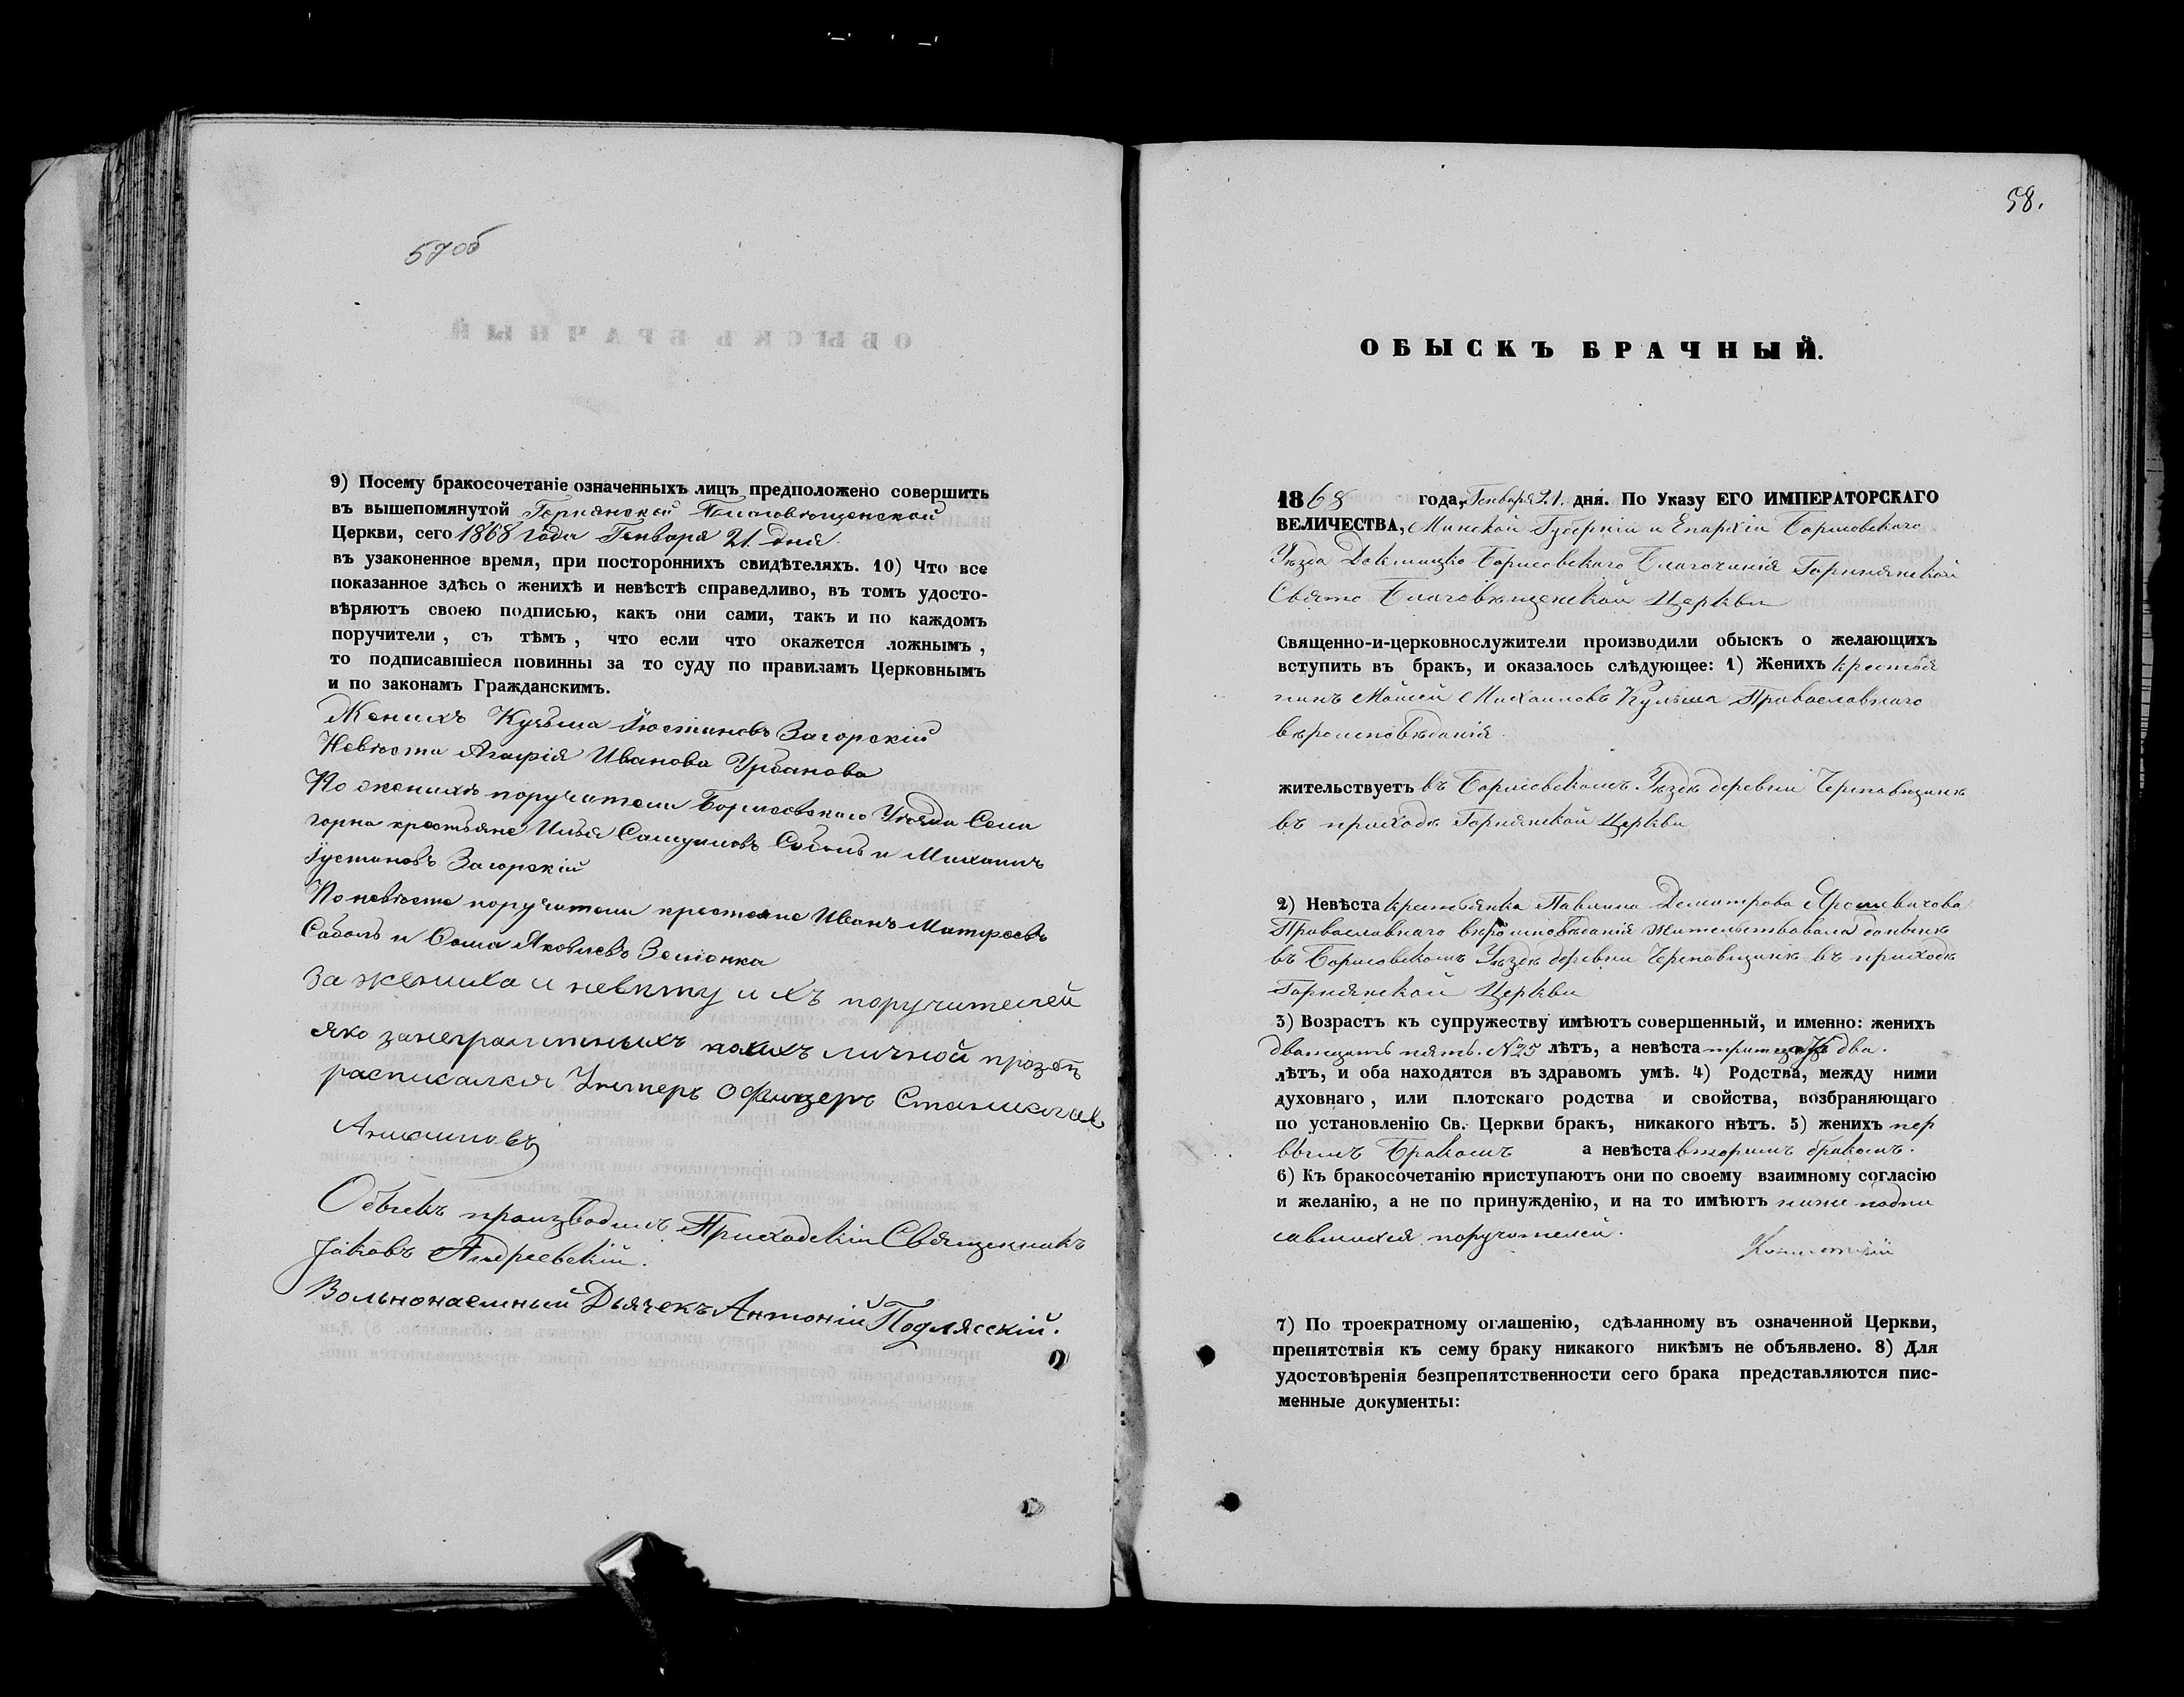 57об
9) Посему бракосочетаніе означенныхъ лицъ предположено совершить
въ вышепомянутой Горнянской Благовѣщенской
Церкви, сего 1868 года Генваря 21 дня.
въ узаконенное время, при постороннихъ свидѣтеляхъ. 10) Что все
показанное здѣсь о женихѣ и невѣстѣ справедливо, въ томъ удосто-
вѣряютъ своею подписью, какъ они сами, такъ и по каждомъ
поручители, съ тѣмъ, что если что окажется ложнымъ,
то подписавшіеся повинны за то суду по правиламъ Церковнымъ
и по законамъ Гражданскимъ.
Женихъ Кузьма Іюстиновъ Загорскій
Невѣста Агафія Иванова Урбанова
По женихѣ поручители Борисовского Уѣзда Села
горна крестьяне Илья Соболь и Михаилъ
Іустиновъ Загорскій
По невѣсте поручители крестяне Иванъ Матфеевъ
Соболь и Ѳома Яковлевъ
За жениха и невѣсту и ихъ поручителей
яко занеграмтныхъ по ихъ личной прозбѣ
росписался Унтеръ Офицеръ
Обыскъ производилъ Приходскій Священникъ
Іаковъ Андреевскій.
Вольнонаемный Дьячекъ Антоній Подлясскій.
58.
ОБЫСКЪ БРАЧНЫЙ.
1868 года, Генваря 21. дня. По Указу ЕГО ИМПЕРАТОРСКАГО
ВЕЛИЧЕСТВА, Минской Губерніи и Епархіи Борисовскаго
Уѣзда Докшицко Борисовскаго Благочинія Горнянской
Свято Благовѣщенской Церкви
Священно-и-церковнослужители производили обыскъ о желающихъ
вступить въ бракъ, и оказалось слѣдующее: 1) Женихъ крестья
нинъ Моисей Михаиловъ Кульша Православнаго
вѣроисповѣданія.
жительствуетъ въ Борисовскомъ Уѣздѣ деревни
въ приходѣ Горнянской Церкви
2) Невѣста крестьянка Павлина Демитрова Ярошевичова
Православнаго вѣроисповѣданія жительствовала донынѣ
въ Борисовскомъ Уѣздѣ деревни въ приходѣ
Горнянской Церкви
3) Возрастъ къ супружеству имѣютъ совершенный, и именно: женихъ
двадцать пять. №25 лѣтъ, а невѣста тритцать два.
лѣтъ, и оба находятся въ здравомъ умѣ. 4) Родства, между ними
духовнаго, или плотскаго родства и свойства, возбраняющаго
по установленію Св. Церкви бракъ, никакого нѣтъ. 5) женихъ пер
вымъ бракомъ а невѣста вторымъ бракомъ.
6) Къ бракосочетанію приступаютъ они по своему взаимному согласію
и желанію, а не по принужденію, и на то имѣютъ ниже подпи
савшихся поручителей.
7) По троекратному оглашенію, сдѣланному въ означенной Церкви,
препятствія къ сему браку никакого никѣмъ не объявлено. 8) Для
удостовѣренія безпрепятственности сего брака представляются пис-
менные документы: